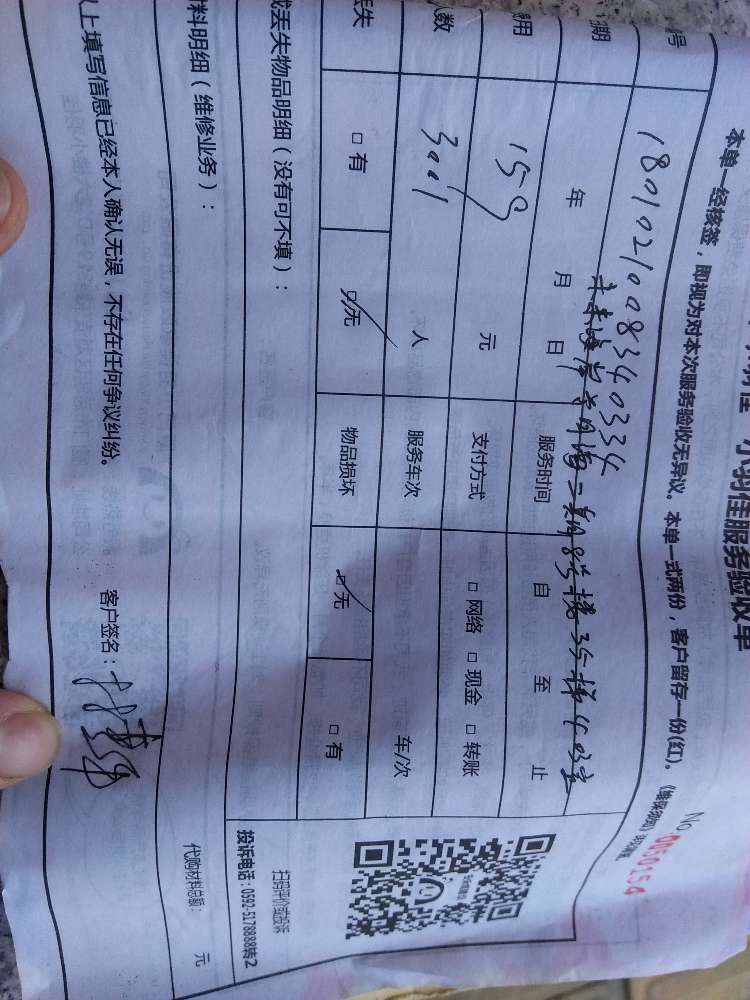 小羽佳服务验收单
No 0050154
本单一经核签，即视为对本次服务验收无异议。本单一式两份，客户留存一份(红)。
号
180102100834033​4
期
年 月 日
服务时间
自 至 止
8号楼3号梯403室
用
159
元
支付方式
□ 网络 □ 现金 □ 转账
人数
3001
人
服务车次
车/次
丢失
□ 有
□ 无
物品损坏
□ 无
□ 有
或丢失物品明细（没有可不填）：
扫码评价或投诉
投诉电话：0592-5178888转2
材料明细（维修业务）：
代购材料总额： 元
以上填写信息已经本人确认无误，不存在任何争议纠纷。
客户签名：